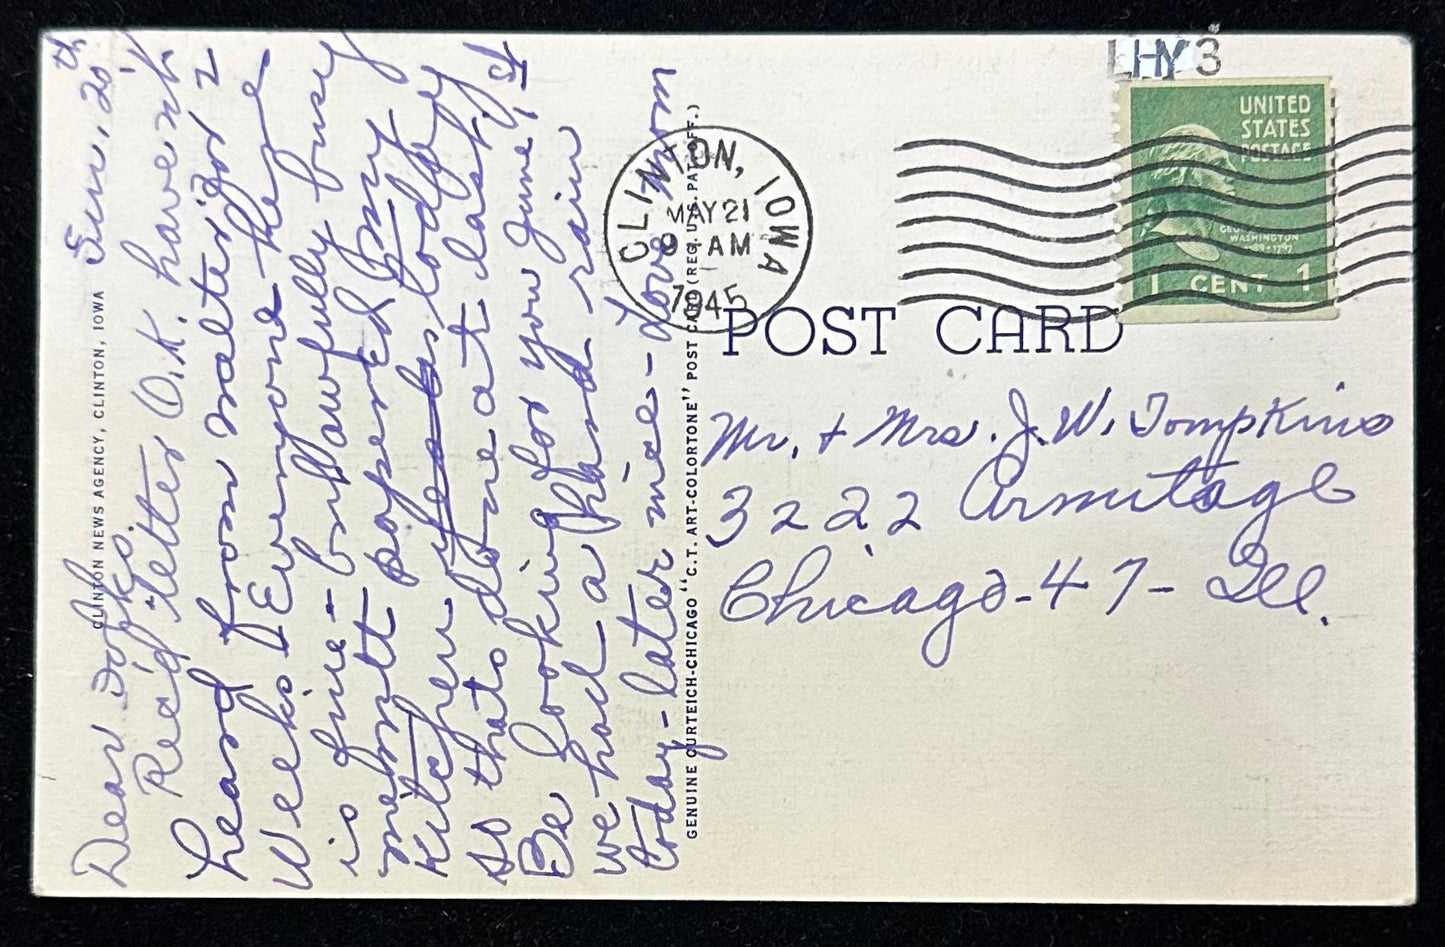 Dear Folks, Sun. 20th
Rec'd letter O.K. haven't
heard from Walter for 2
weeks. Everyone here
is fine - but awfully busy
papered my
kitchen yes today
so thats done at last.
Be looking for you June 1st
we had a hard rain
today - later nice - Love mom
CLINTON NEWS AGENCY, CLINTON, IOWA
GENUINE CURTEICH-CHICAGO "C.T. ART-COLORTONE" POST CARD (REG. U.S. PAT. OFF.)
CLINTON, IOWA
MAY 21
9 AM
1945
LHY3
UNITED
STATES
POSTAGE
GEORGE
WASHINGTON
1789-1797
1 CENT 1
POST CARD
Mr. + Mrs. J. W. Tompkins
3222 Armitage
Chicago - 47 - Ill.